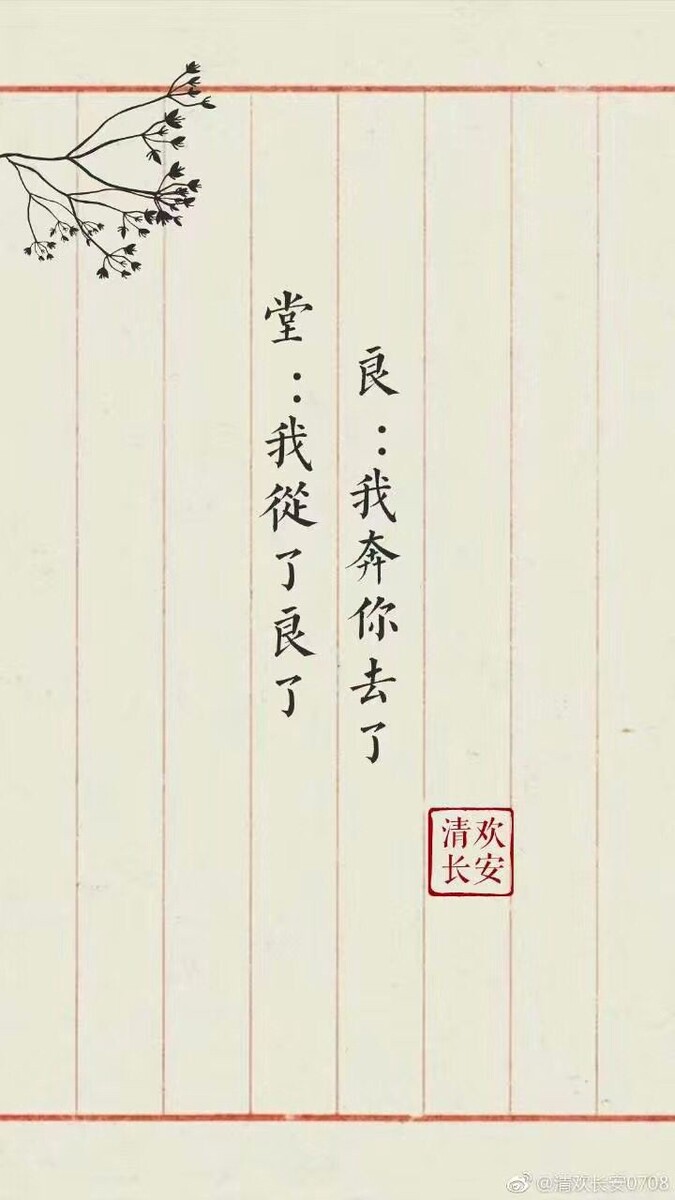 良：我奔你去了
堂：我從了良了
清欢
长安
@清欢长安0708